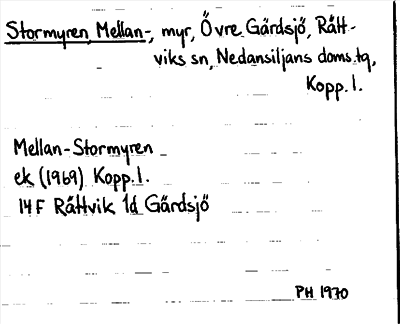 Stormyren, Mellan-, myr, Övre Gärdsjö, Rätt-
viks sn, Nedansiljans doms.tg,
Kopp. l.
Mellan-Stormyren
ek (1969) Kopp. l.
14F Rättvik 1d Gärdsjö
PH 1970